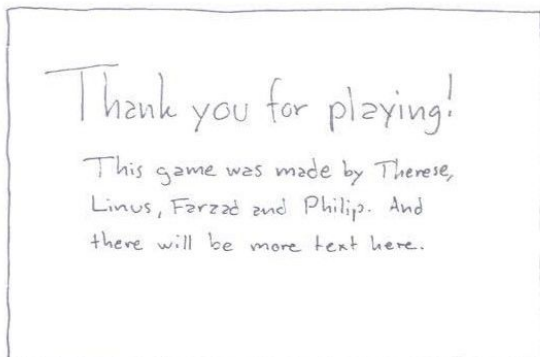 Thank you for playing!
This game was made by Therese,
Linus, Farzad and Philip. And
there will be more text here.